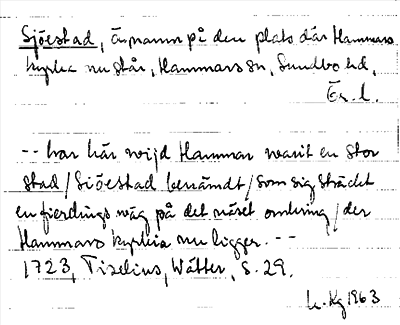 Sjöestad, änamn på den plats där Hammars
kyrka nu står, Hammars sn, Sundbo hd,
Ör. l.
-- har här wijd Hammar warit en stor
stad / Siöestad benämdt / som sig sträckt
en fierdings wäg på det näset omkring / der
Hammars kyrkia nu ligger. --
1723, Tiselius, Wätter, s. 29.
Kg 1963